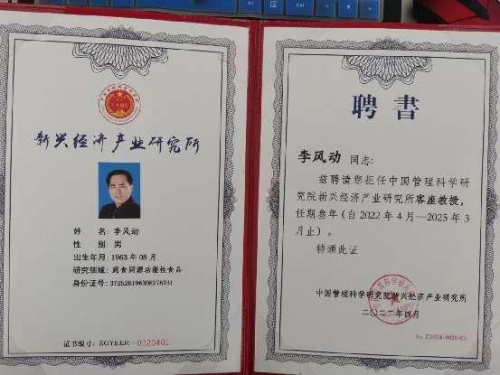 新兴经济产业研究所
姓 名：李风动
性 别：男
出生年月：1963 年 08 月
研究领域：药食同源功能性食品
身份证号：
证书编号：ZGYEER-0020401
聘书
李风动 同志：
兹聘请您担任中国管理科学研
究院新兴经济产业研究所客座教授，
任期叁年（自 2022 年 4 月—2025 年 3
月止）。
特颁此证
中国管理科学研究院新兴经济产业研究所
二〇二二年四月